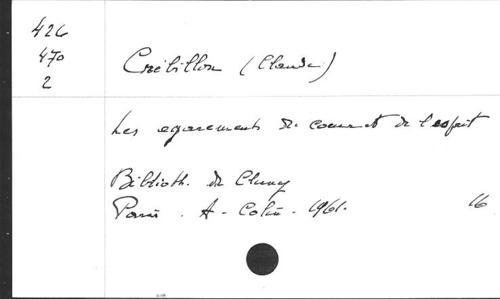 426
470
2
Crébillon (Claude)
Les egarements du coeur et de l'esprit
Biblioth. de Cluny
Paris. A. Colin. 1961. 16